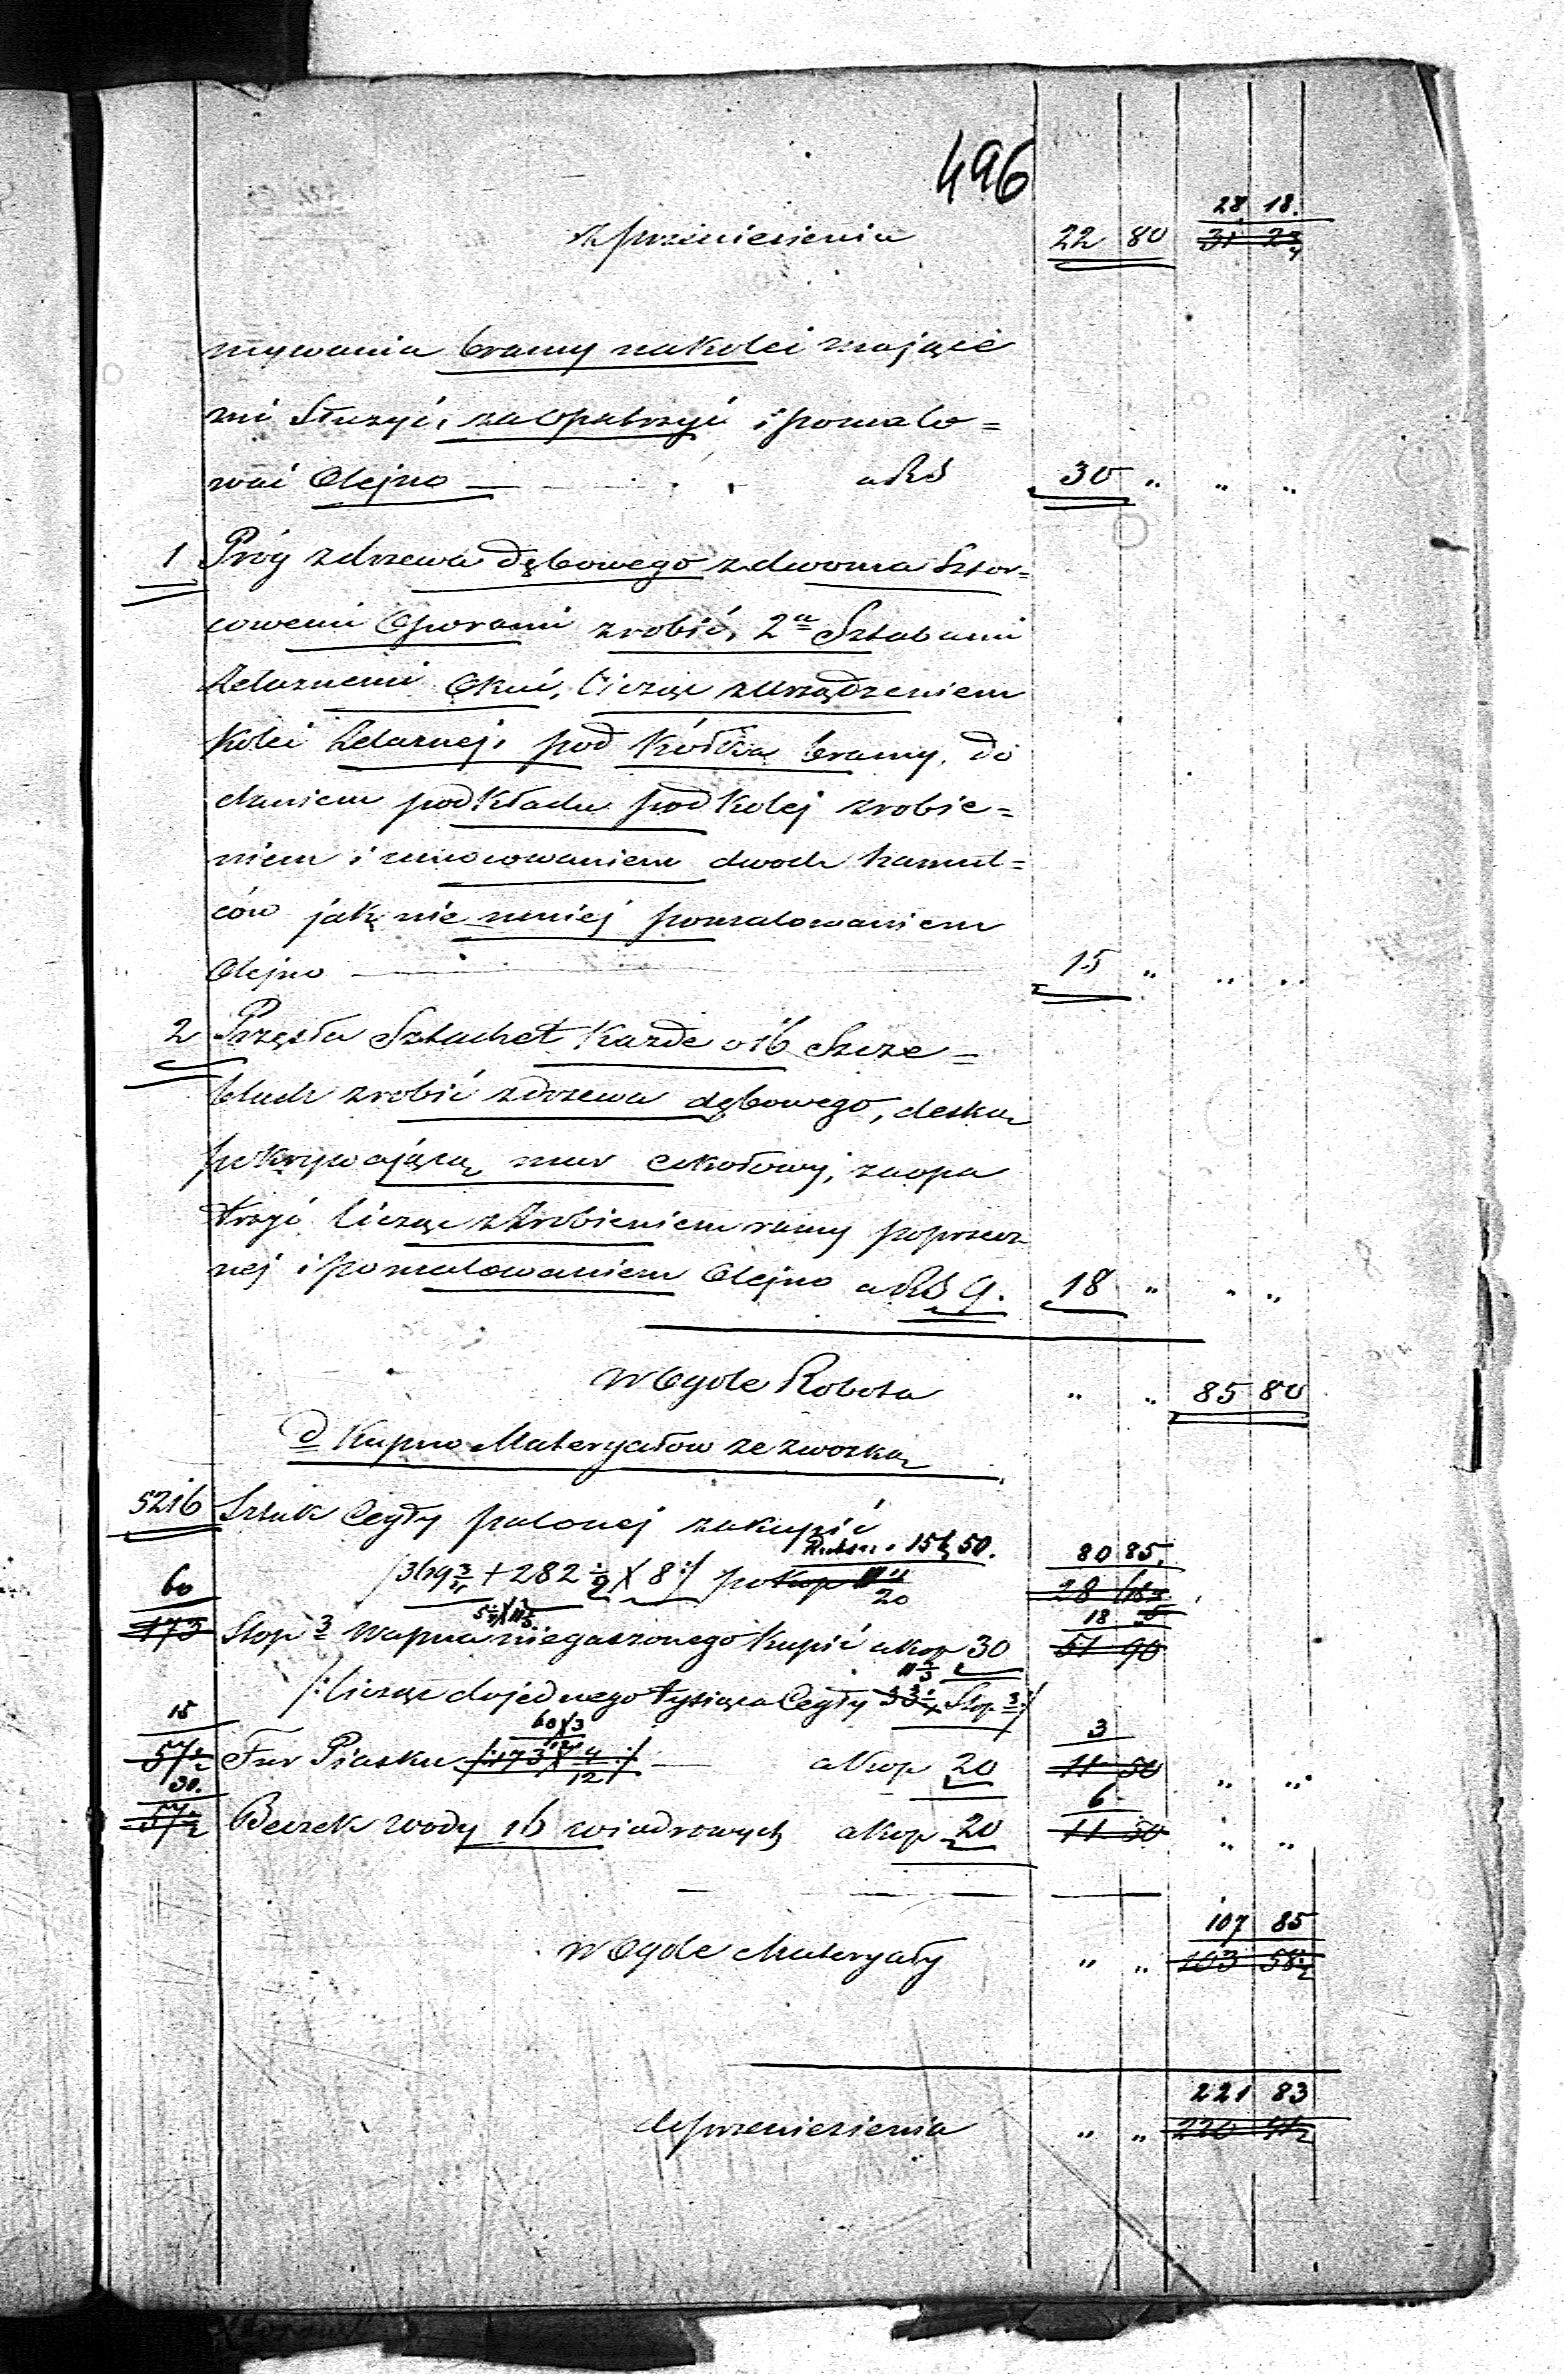 496
28 18.
z przeniesienia 22 80 31 23
mywania bramy na kolei mające
mi służyć, zaopatrzyć i pomalo=
wać Olejno — a RS 30 " " "
1 Próg z drzewa dębowego z dwoma Sztor=
cowemi Oporami zrobić, 2a Sztabami
żelaznemi Okuć, licząc z urządzeniem
Kolei żelaznej, pod Kółka bramy, do
daniem podkładu pod Kolej zrobie=
niem i umocowaniem dwoch hamul=
ców jak nie mniej pomalowaniem
Olejno — 15 " " "
2 Przęsła Sztachet Każde o 16 Szcze=
blach zrobić z drzewa dębowego, deską
pokrywającą mur cokołowy, zaopa
trzyć licząc z Zrobieniem ramy poprzecz
nej i pomalowaniem Olejno a RS 9. 18 " " "
W Ogole Robota " " 85 80
d Kupno Materyałow ze zwozką
5216 Sztuk Cegły palonej zakupić
15 50. 80 85.
/369 + 282 ½ X 8:/ po Kop 11/20 28
60 18
173 Stop 3 Wapna niegaszonego Kupić a kop 30 51 90
/:licząc do jednego tysiąca Cegły Stop 3:/
15 60 X 3 3
57½ Fur Piasku /:173 X 4/12:/ — a Kop 20 11 50 " "
30. 6
57½ Beczek wody 16 wiadrowych a Kop 20 11 50 " "
107 85
W Ogole Materyały " " 103 58½
221 83
do przeniesienia " " 220